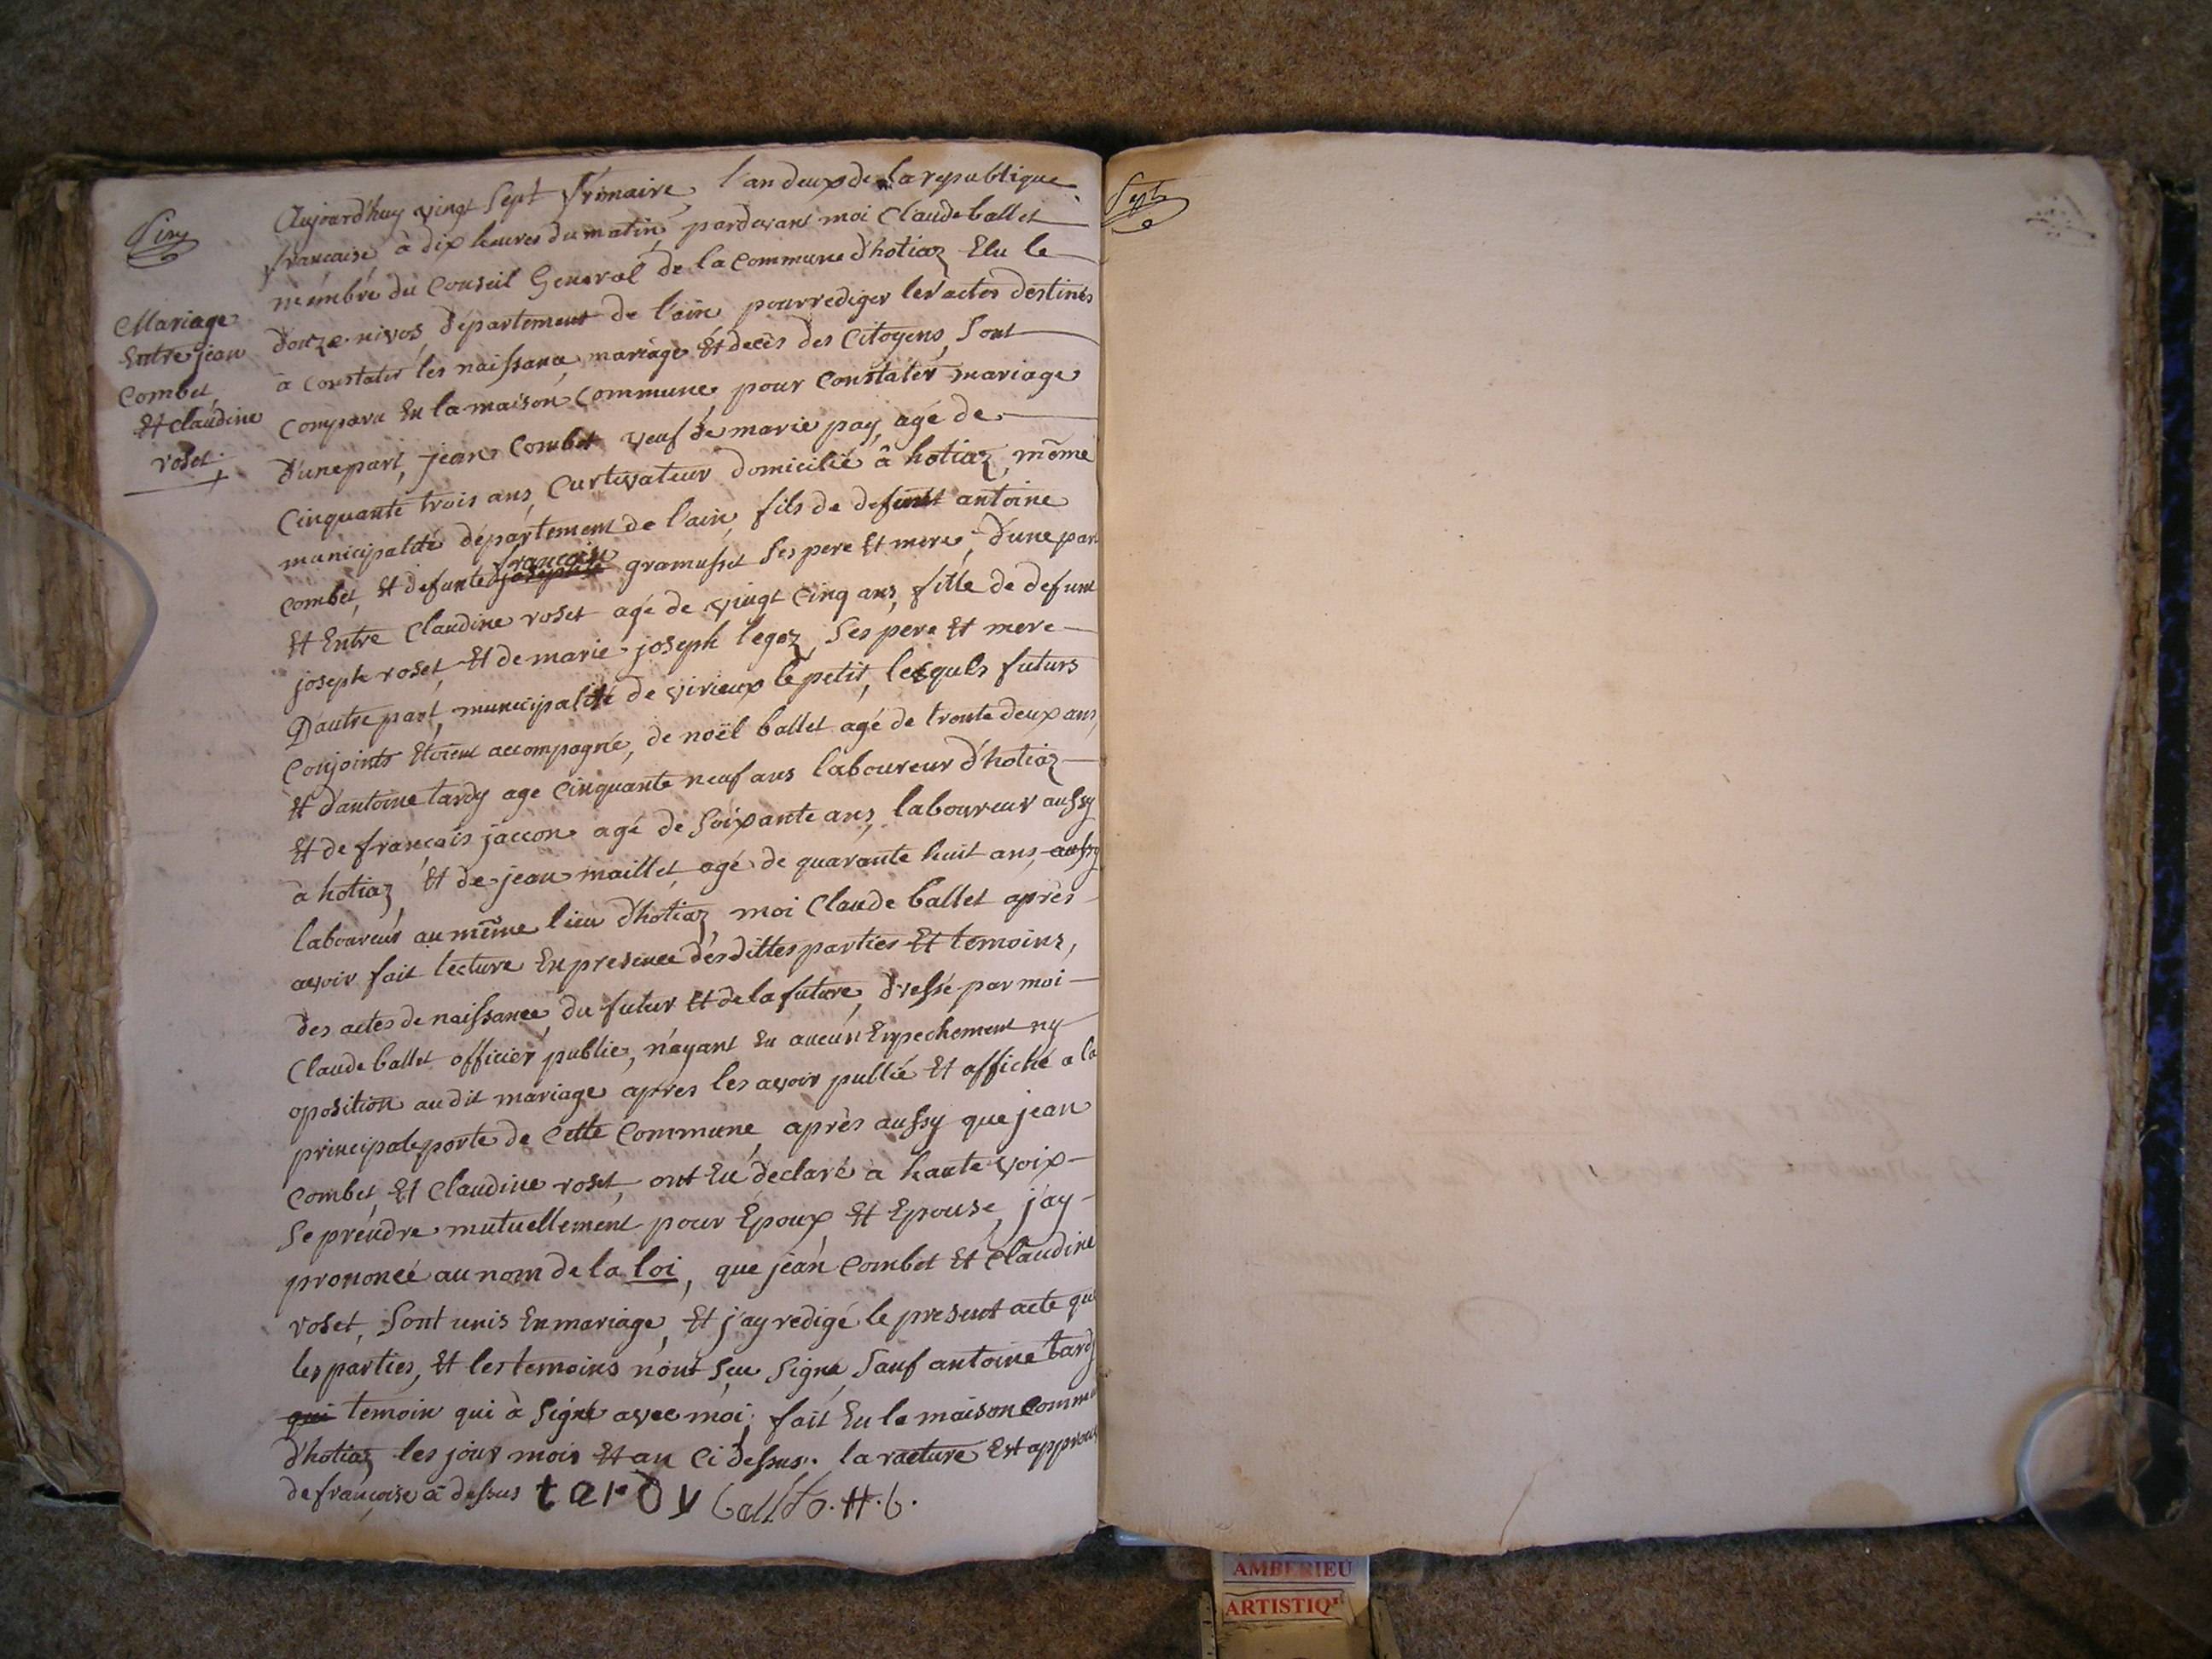 Cinq
Mariage
Entre jean
Combet
Et claudine
roset
Aujourd'huy vingt Sept frimaire, l'an deux de la republique
francaise à dix heures du matin, pardevant moi Claude ballet
membre du Conseil General de la Commune d'hotiaz Elu le
douze nivos, département de l'ain pour rediger les actes destinés
à constater les naissance, mariage Et decès des Citoyens, Sont
Comparu En la maison Commune, pour Constater mariage
d'une part, jean Combet veuf de marie pay, agé de
Cinquante trois ans, Curtivateur domicilié â hotiaz, même
municipalité département de l'ain, fils de defunt antoine
francoise
combet, Et defunte josephte gramusset Ses pere Et mere, d'une part
Et Entre Claudine roset agé de vingt Cinq ans, fille de defunt
joseph roset, Et de marie joseph legoz, Ses pere Et mere
D'autre part, municipalité de virieux le petit, lesquels futurs
Conjoints Etoient accompagné, de noël ballet agé de trente deux ans,
Et d'antoine tardy age Cinquante neuf ans laboureur d'hotiaz
Et de francois jaccon agé de Soixante ans, laboureur aussy
à hotiaz, Et de jean maillet, agé de quarante huit ans, aussy
laboureur au même lieu d'hotiaz, moi Claude ballet après
avoir fait lecture En presence desdittes parties Et temoins,
des actes de naissance, du futur Et de la future, dressé par moi
Claude ballet officier public, n'ayant Eu aucun Enpechement ny
oposition audit mariage apres les avoir publié Et affiché a la
principale porte de Cette Commune, après aussy que jean
Combet, Et Claudine roset, ont Eu déclaré a haute voix
Se prendre mutuellement pour Epoux Et Epouse, j'ay
prononcé au nom de la loi, que jean Combet Et Claudine
roset, Sont unis En mariage, Et j'ay redigé le present acte que
les parties, Et les temoins n'ont Sçu Signé, Sauf antoine tardy
qui temoin qui à Signé avec moi, fait En la maison Commune
d'hotiaz les jour mois Et an Ci dessus. la racture Est approuvé
de françoise ā dessus tardy ballet o. H. b.
Sept
AMBERIEU
ARTISTIQ